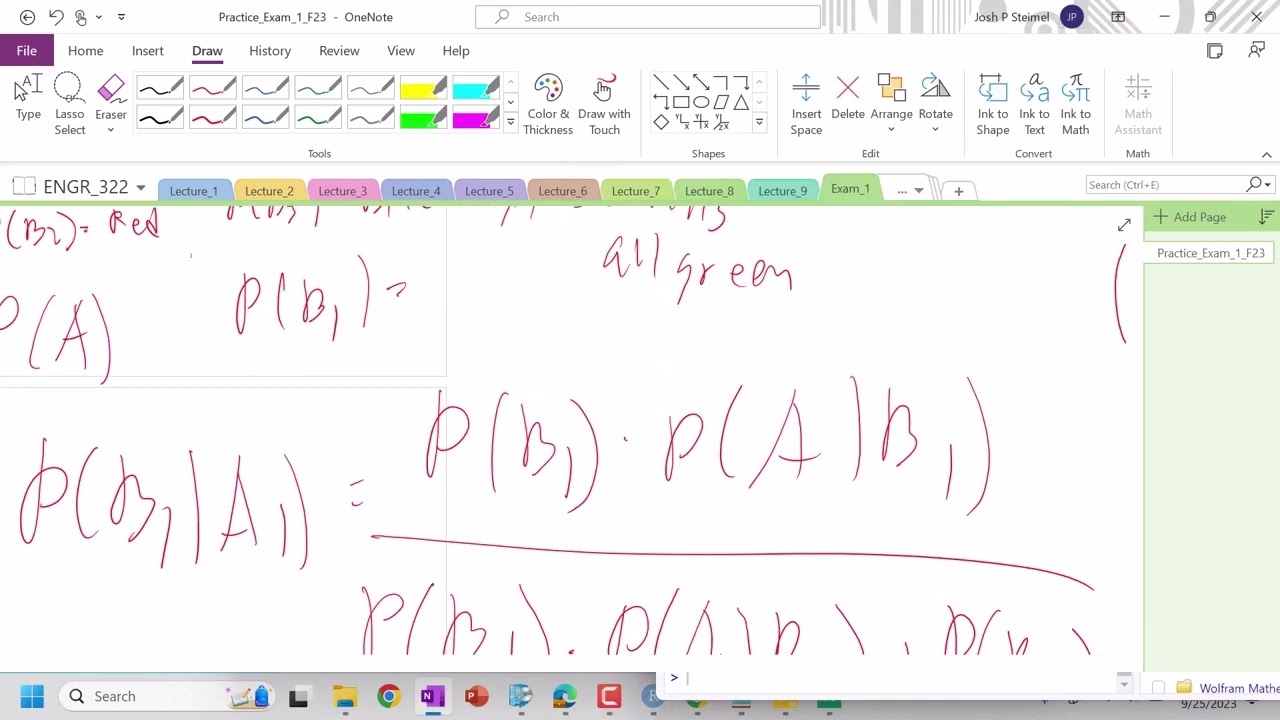 Practice_Exam_1_F23 - OneNote
Search
Josh P Steimel
JP
File Home Insert Draw History Review View Help
Type
Lasso Select
Eraser
Color & Thickness
Draw with Touch
Insert Space
Delete
Arrange
Rotate
Ink to Shape
Ink to Text
Ink to Math
Math Assistant
Tools Shapes Edit Convert Math
ENGR_322 Lecture_1 Lecture_2 Lecture_3 Lecture_4 Lecture_5 Lecture_6 Lecture_7 Lecture_8 Lecture_9 Exam_1 ... + Search (Ctrl+E)
+ Add Page
Practice_Exam_1_F23
P(B2)= Red
all green
P(B1) =
P(A)
P(B1) · P(A|B1)
P(B1|A1) =
P(B1) · P(A|B
>
Search
Wolfram Mathe
9/25/2023